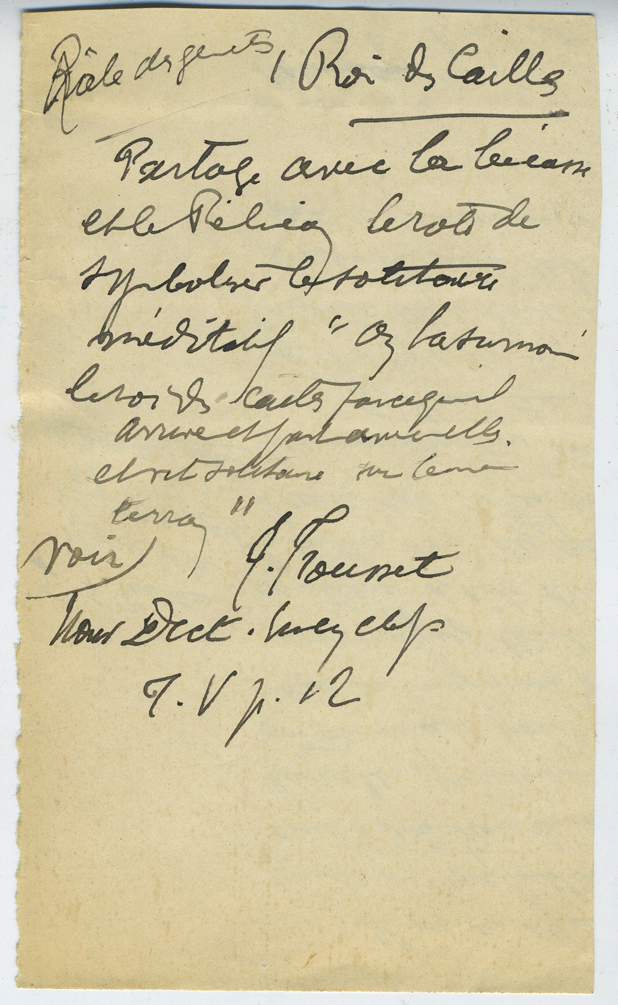 Râle des genets, Roi des Cailles
Partage avec la bécasse
et le Pélican le rôle de
symboliser le solitaire
méditatif " On l'a surnommé
le roi des cailles parce qu'il
arrive et part avec elles.
et vit solitaire sur le même
terrain "
voir J. Trousset
Nouv Dict. Encyclop
T. V p. 12